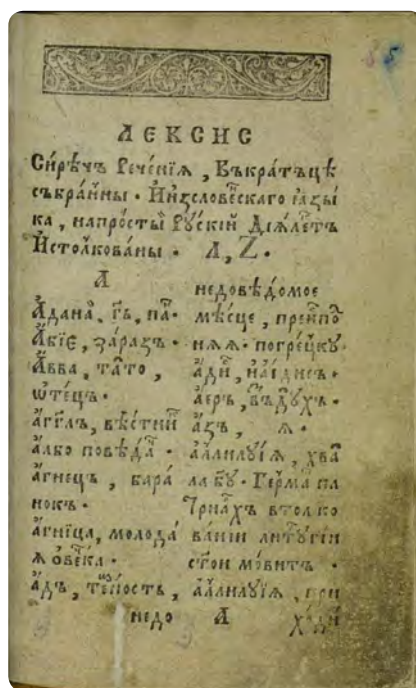 ЛЕКСИС
Си́рѣчъ Рече́нїѧ, Въкра́тъцѣ
събра́нны. Ииⷥсловеⷩ҇скаго ꙗ҆зы́
ка, напро́стыⷨ Рꙋ́скїй Дїѧ́леⷦ҇тъ
Исто́лкованы. Л, Z.
А
Абїе, за́разъ.
Авва, та́то,
ѿте́цъ.
а҆́гг҃лъ, вѣ́стниⷦ
а҆́лбо повѣда҆ч.
а҆гнецъ, бара
нокъ.
а҆гни́ца, молода́
ѧ ѻ҆ве́чка.
а҆́дъ, теⷨность,
недо
недовѣ́домое
мѣ́сце, преиспоⷣ
нѧѧ. погре́цкꙋ
а҆́еръ, въ́здꙋхъ.
а҆́зъ, ѧ.
а҆ллилꙋ́їѧ, хва
ла бꙋ. Ге́рмаⷩ па
трїа́рхъ втолко
ванїи литꙋ́ргїи
стои мо́витъ.
а҆ллилꙋ́їѧ, при
А